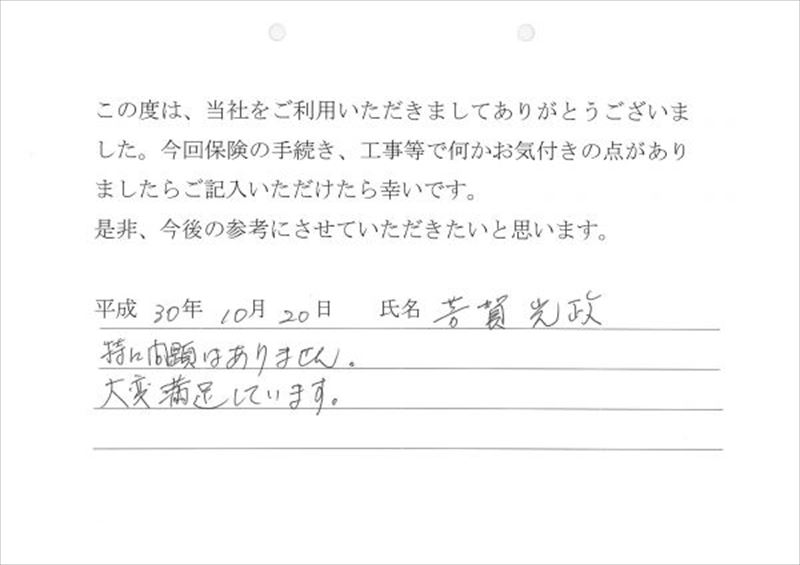 この度は、当社をご利用いただきましてありがとうございま
した。今回保険の手続き、工事等で何かお気付きの点があり
ましたらご記入いただけたら幸いです。
是非、今後の参考にさせていただきたいと思います。
平成 30年 10月 20日 氏名 芳賀光政
特に問題はありません。
大変満足しています。